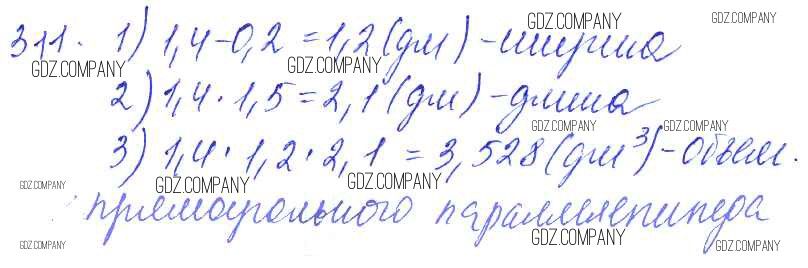 311. 1) 1,4-0,2=1,2(дм)-ширина
2) 1,4·1,5=2,1(дм)-длина
3) 1,4·1,2·2,1=3,528(дм³)-объем.
прямоугольного параллелепипеда
GDZ.COMPANY GDZ.COMPANY
GDZ.COMPANY GDZ.COMPANY
GDZ.COMPANY GDZ.COMPANY
GDZ.COMPANY GDZ.COMPANY GDZ.COMPANY
GDZ.COMPANY GDZ.COMPANY GDZ.COMPANY